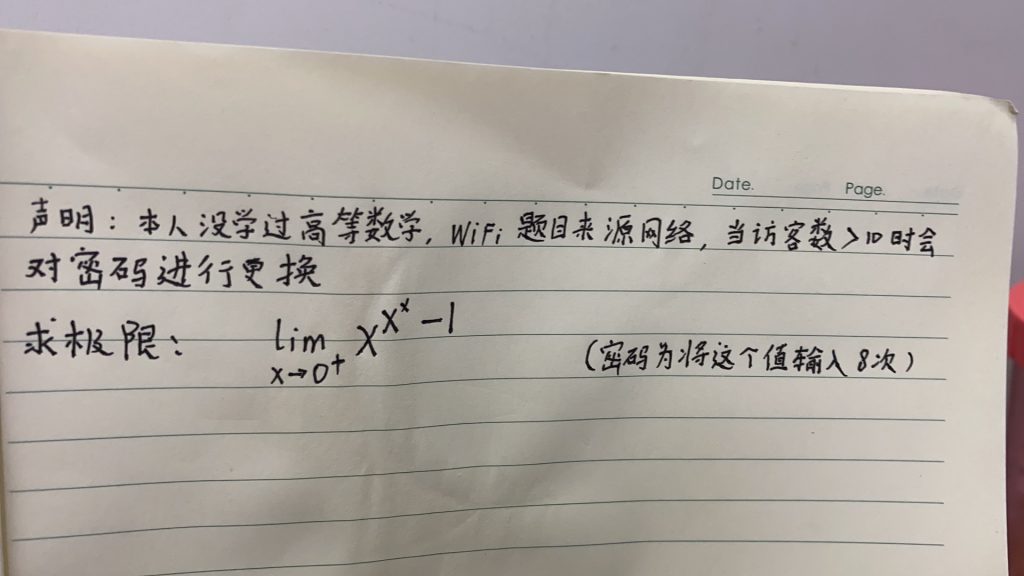 Date.
Page.
声明：本人没学过高等数学，WiFi 题目来源网络，当访客数>10时会
对密码进行更换
求极限： lim x→0⁺ x^(x^x-1) （密码为将这个值输入8次）